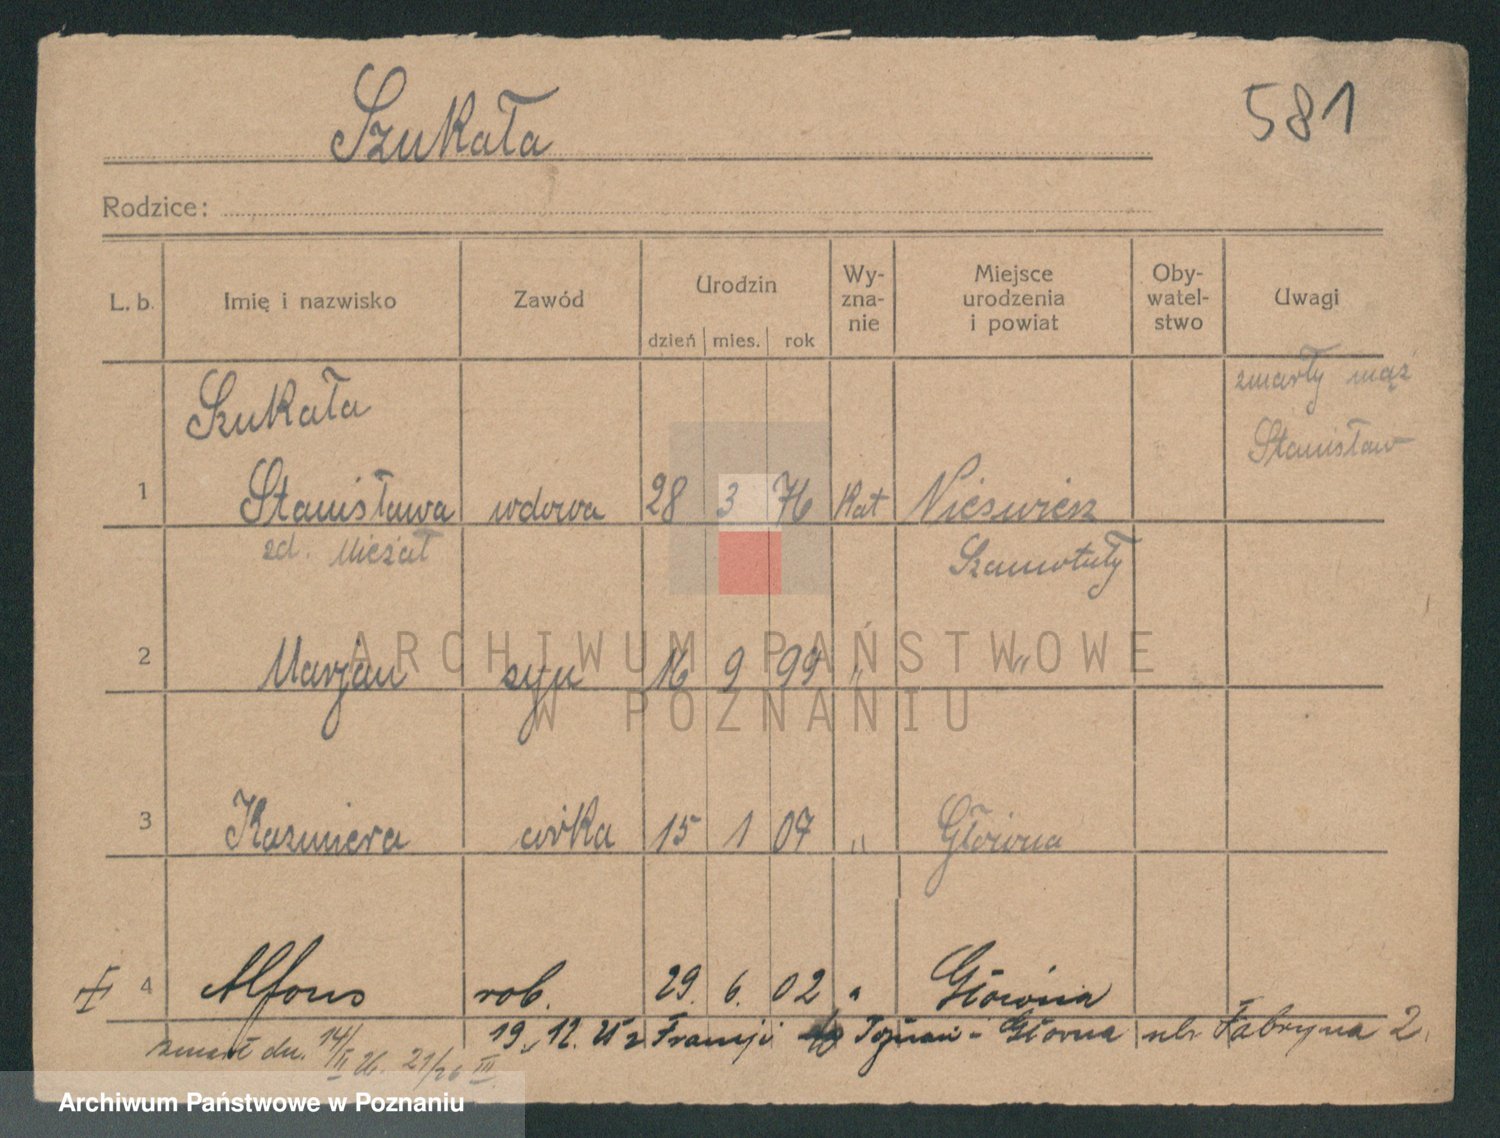 Szukała
581
Rodzice:
L. b. Imię i nazwisko Zawód Urodzin dzień mies. rok Wy-zna-nie Miejsce urodzenia i powiat Oby-watel-stwo Uwagi
Szukała zmarły mąż
Stanisław
1 Stanisława wdowa 28 3 76 Kat Nieświerz
zd. Mieżał Szamotuły
2 Marjan syn 16 9 99 „ „
3 Kazimiera córka 15 1 07 „ Główna
4 Alfons rob. 29. 6. 02 „ Główna
19. 12. 25 z Francji Poznań - Główna ul. Fabryczna 2.
zmarł dn. 14/II 26. 21/26 III
ARCHIWUM PAŃSTWOWE
W POZNANIU
Archiwum Państwowe w Poznaniu